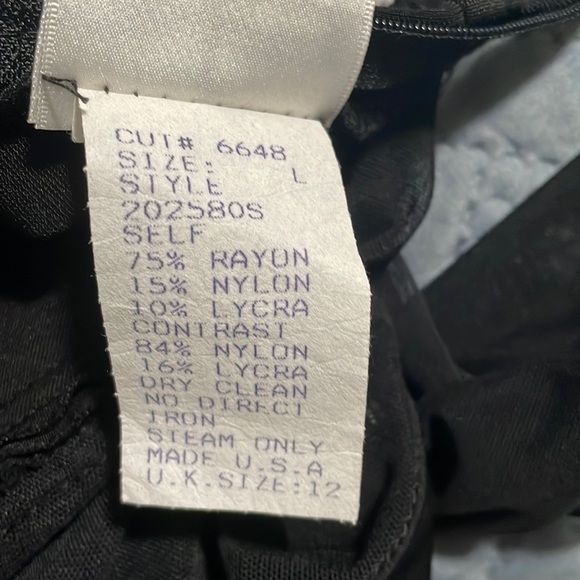 CUT# 6648
SIZE: L
STYLE
202580S
SELF
75% RAYON
15% NYLON
10% LYCRA
CONTRAST
84% NYLON
16% LYCRA
DRY CLEAN
NO DIRECT
IRON
STEAM ONLY
MADE U.S.A
U.K.SIZE:12